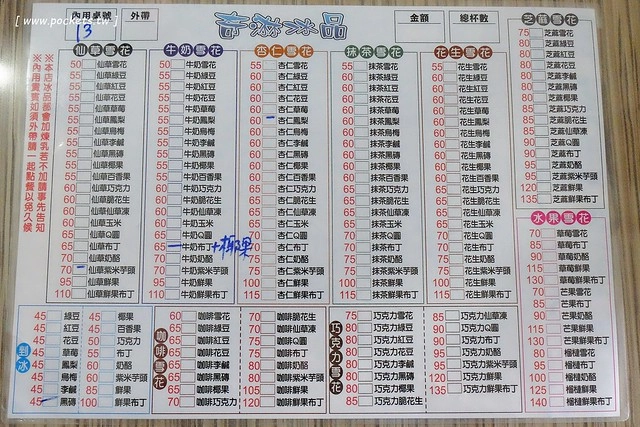 [ www.pockets.tw ]
內用桌號 外帶
13
奇淋冰品
金額 總杯數
※本店冰品都會加煉乳若不加請事先告知
仙草雪花
50 仙草雪花
55 仙草綠豆
55 仙草紅豆
55 仙草花豆
55 仙草草莓
55 仙草鳳梨
55 仙草烏梅
55 仙草李鹹
55 仙草黑磚
55 仙草椰果
55 仙草百香果
60 仙草巧克力
60 仙草脆花生
60 仙草仙草凍
60 仙草玉米
65 仙草Q圓
65 仙草布丁
70 仙草奶酪
70 仙草紫米芋頭
95 仙草鮮果
110 仙草鮮果布丁
牛奶雪花
50 牛奶雪花
55 牛奶綠豆
55 牛奶紅豆
55 牛奶花豆
55 牛奶草莓
55 牛奶鳳梨
55 牛奶烏梅
55 牛奶李鹹
55 牛奶黑磚
55 牛奶椰果
55 牛奶百香果
60 牛奶巧克力
60 牛奶脆花生
60 牛奶仙草凍
60 牛奶玉米
65 牛奶Q圓
65 牛奶布丁 +椰果
70 牛奶奶酪
70 牛奶紫米芋頭
95 牛奶鮮果
110 牛奶鮮果布丁
杏仁雪花
55 杏仁雪花
60 杏仁綠豆
60 杏仁紅豆
60 杏仁花豆
60 杏仁草莓
60 杏仁鳳梨
60 杏仁烏梅
60 杏仁李鹹
60 杏仁黑磚
60 杏仁椰果
60 杏仁百香果
65 杏仁巧克力
65 杏仁脆花生
65 杏仁仙草凍
65 杏仁玉米
70 杏仁Q圓
杏仁布丁
75 杏仁奶酪
75 杏仁紫米芋頭
100 杏仁鮮果
115 杏仁鮮果布丁
抹茶雪花
55 抹茶雪花
60 抹茶綠豆
60 抹茶紅豆
60 抹茶花豆
60 抹茶草莓
60 抹茶鳳梨
60 抹茶烏梅
60 抹茶李鹹
60 抹茶黑磚
60 抹茶椰果
60 抹茶百香果
65 抹茶巧克力
65 抹茶脆花生
65 抹茶仙草凍
65 抹茶玉米
70 抹茶Q圓
70 抹茶布丁
75 抹茶奶酪
75 抹茶紫米芋頭
100 抹茶鮮果
115 抹茶鮮果布丁
花生雪花
55 花生雪花
60 花生綠豆
60 花生紅豆
60 花生花豆
60 花生草莓
60 花生鳳梨
60 花生烏梅
60 花生李鹹
60 花生黑磚
60 花生椰果
60 花生百香果
65 花生巧克力
65 花生脆花生
65 花生仙草凍
65 花生玉米
70 花生Q圓
70 花生布丁
75 花生奶酪
75 花生紫米芋頭
100 花生鮮果
115 花生鮮果布丁
芝蔴雪花
75 芝蔴雪花
80 芝蔴綠豆
80 芝蔴紅豆
80 芝蔴花豆
80 芝蔴李鹹
80 芝蔴黑磚
80 芝蔴椰果
85 芝蔴巧克力
85 芝蔴脆花生
85 芝蔴仙草凍
90 芝蔴Q圓
90 芝蔴布丁
95 芝蔴奶酪
95 芝蔴紫米芋頭
120 芝蔴鮮果
135 芝蔴鮮果布丁
水果雪花
70 草莓雪花
85 草莓布丁
90 草莓奶酪
115 草莓鮮果
130 草莓鮮果布丁
70 芒果雪花
85 芒果布丁
90 芒果奶酪
115 芒果鮮果
130 芒果鮮果布丁
80 榴槤雪花
95 榴槤布丁
100 榴槤奶酪
125 榴槤鮮果
140 榴槤鮮果布丁
剉冰
45 綠豆
45 紅豆
45 花豆
45 草莓
45 鳳梨
45 烏梅
45 李鹹
45 黑磚
45 椰果
45 百香果
50 巧克力
55 布丁
60 奶酪
60 紫米芋頭
85 鮮果
100 鮮果布丁
咖啡雪花
60 咖啡雪花
65 咖啡綠豆
65 咖啡紅豆
65 咖啡花豆
65 咖啡李鹹
65 咖啡黑磚
65 咖啡椰果
70 咖啡巧克力
70 咖啡脆花生
70 咖啡仙草凍
75 咖啡Q圓
75 咖啡布丁
80 咖啡奶酪
80 咖啡紫米芋頭
105 咖啡鮮果
120 咖啡鮮果布丁
巧克力雪花
75 巧克力雪花
80 巧克力綠豆
80 巧克力紅豆
80 巧克力花豆
80 巧克力李鹹
80 巧克力黑磚
80 巧克力椰果
85 巧克力脆花生
85 巧克力仙草凍
90 巧克力Q圓
90 巧克力布丁
95 巧克力奶酪
95 巧克力紫米芋頭
120 巧克力鮮果
135 巧克力鮮果布丁